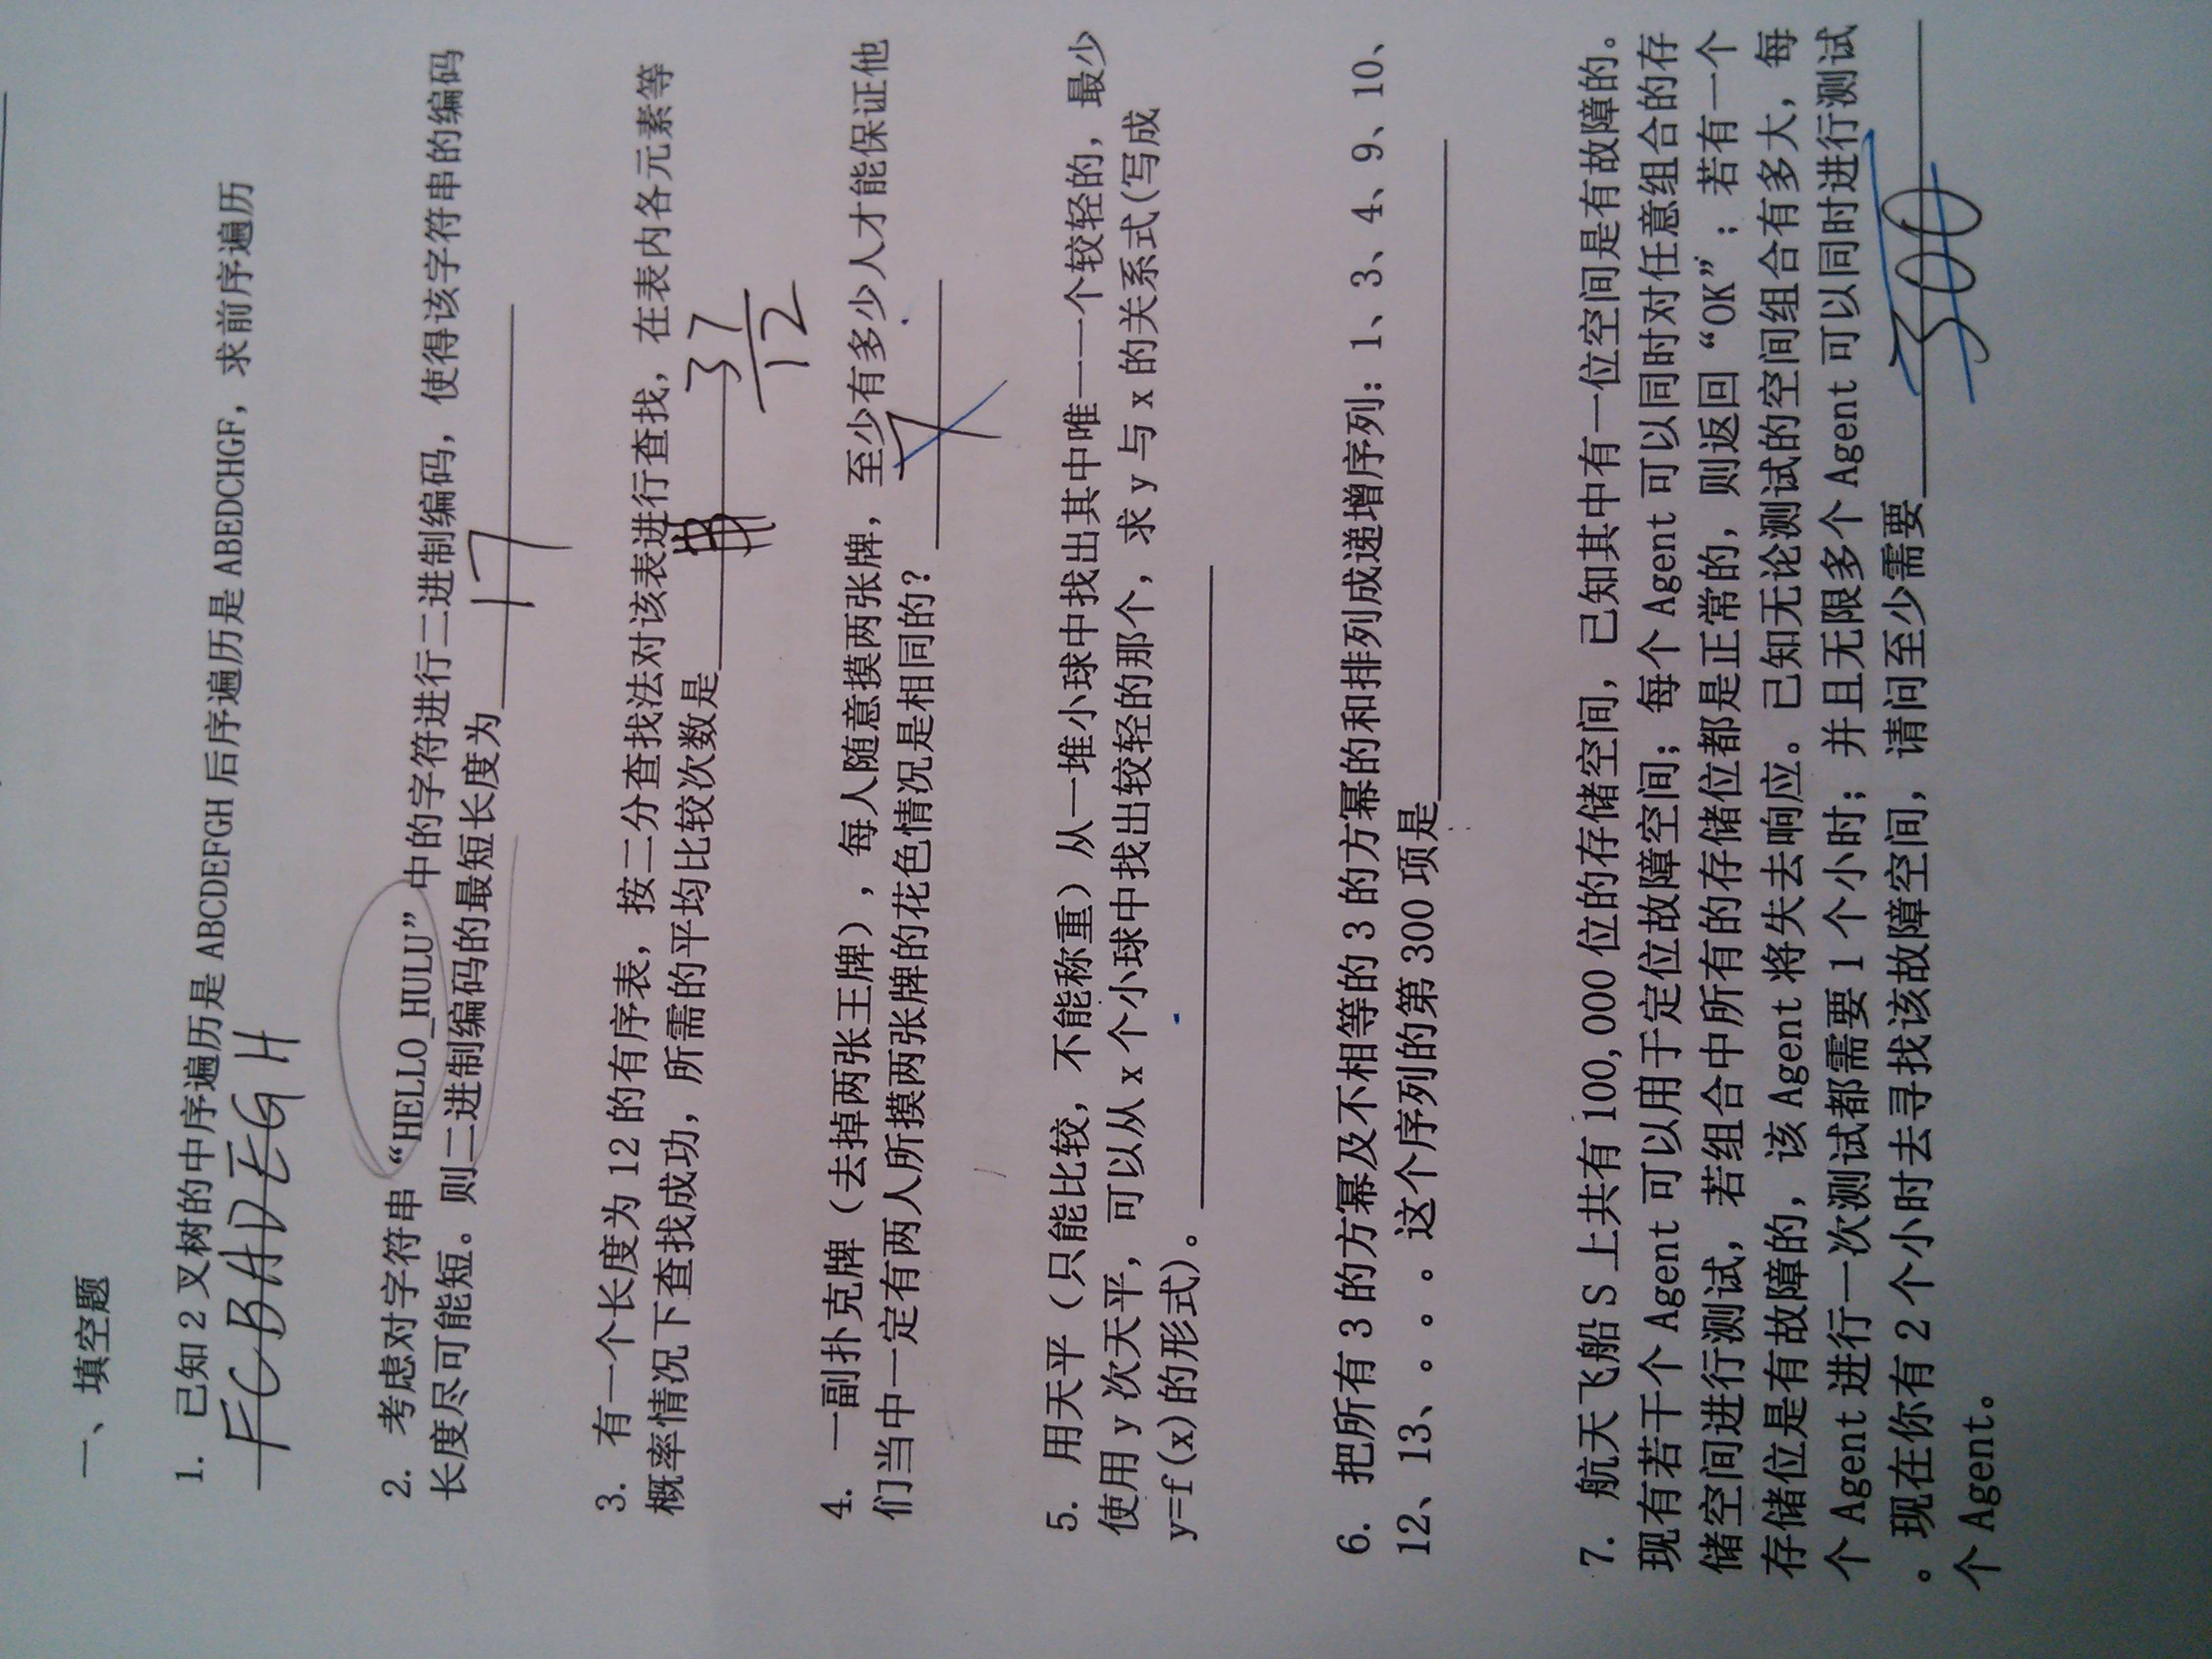 一、填空题
1. 已知2叉树的中序遍历是ABCDEFGH后序遍历是ABEDCHGF，求前序遍历
FCBADEGH
2. 考虑对字符串“HELLO_HULU”中的字符进行二进制编码，使得该字符串的编码
长度尽可能短。则二进制编码的最短长度为17
3. 有一个长度为12的有序表，按二分查找法对该表进行查找，在表内各元素等
概率情况下查找成功，所需的平均比较次数是 37/12
4. 一副扑克牌（去掉两张王牌），每人随意摸两张牌，至少有多少人才能保证他
们当中一定有两人所摸两张牌的花色情况是相同的？ 7
5. 用天平（只能比较，不能称重）从一堆小球中找出其中唯一一个较轻的，最少
使用y次天平，可以从x个小球中找出较轻的那个，求y与x的关系式(写成
y=f(x)的形式)。
6. 把所有3的方幂及不相等的3的方幂的和排列成递增序列：1、3、4、9、10、
12、13、。。。。这个序列的第300项是
7. 航天飞船S上共有100,000位的存储空间，已知其中有一位空间是有故障的。
现有若干个Agent可以用于定位故障空间；每个Agent可以同时对任意组合的存
储空间进行测试，若组合中所有的存储位都是正常的，则返回“OK”；若有一个
存储位是有故障的，该Agent将失去响应。已知无论测试的空间组合有多大，每
个Agent进行一次测试都需要1个小时；并且无限多个Agent可以同时进行测试
。现在你有2个小时去寻找该故障空间，请问至少需要 300
个Agent。